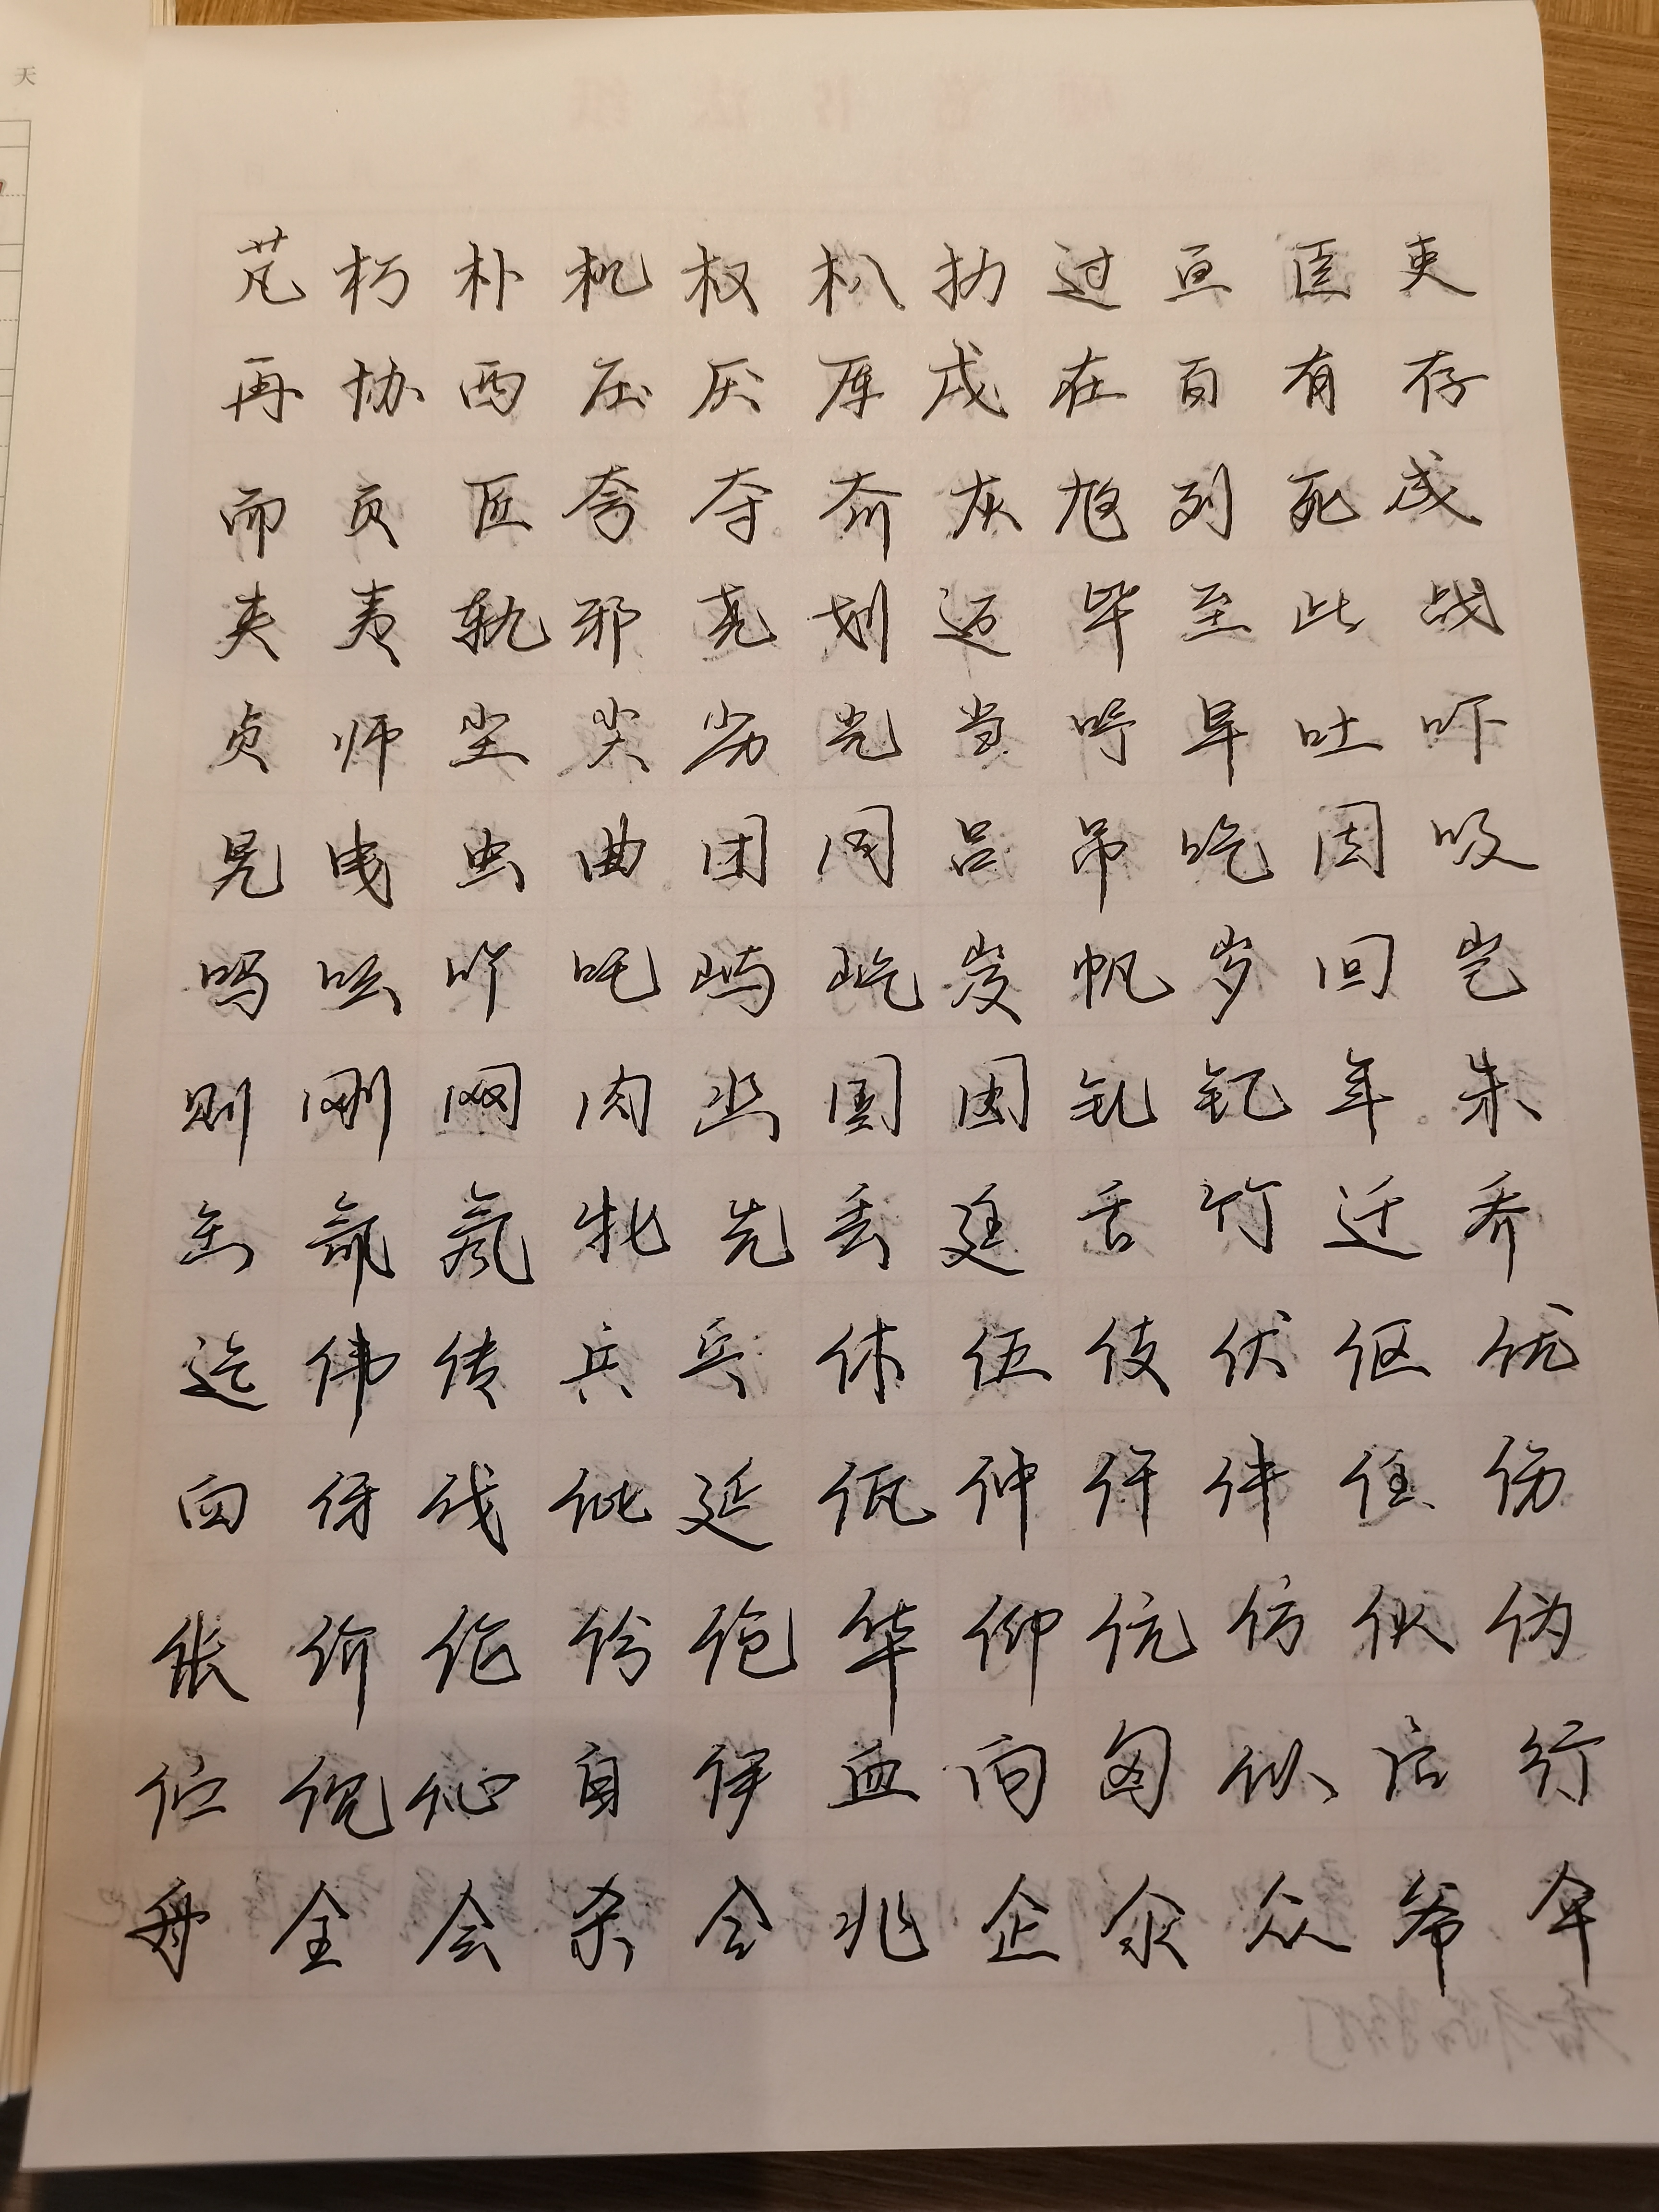 天
芃朽朴机权朳扐过亘臣吏
再协西压厌厍戌在百有存
而页匠夸夺夼灰尥列死成
夹夷轨邪尧划迈毕至此战
贞师尘尖劣光当吁早吐吓
晃曳虫曲团同吕吊吃因吸
吗吆吖吒屿屹岌帆岁回岂
则刚网肉凼囝囡钆钇年朱
缶氘氖牝先丢廷舌竹迁乔
迄伟传乒乓休伍伎伏伛优
臼伢伐仳延佤仲仵件任伤
伥价伦份伧华仰伉仿伙伪
伫伣伈自伊血向囟似后行
舟全会杀合兆企汆众爷伞